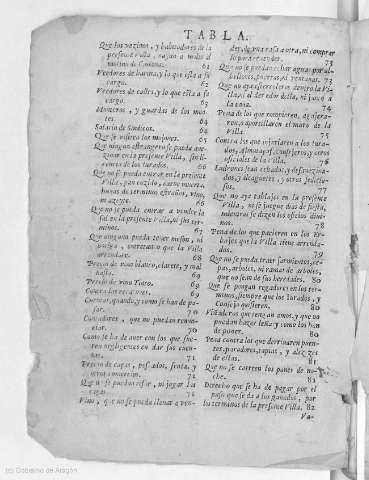 TABLA.
Que los vezinos, y habitadores de la
presente villa, vayan a moler al
molino de
61
Veedores de harina, y lo que esta a su
cargo. 62
Veedores de calles, y lo que esta a su
cargo. 63
y guardas de los mon-
tes. 64
Salario de Sindicos. 64
Que se visiten los mojones. 65
Que ningun estrangero se pueda ave-
zinar en la presente Villa, sin li-
cencia de los Iurados. 66
Que no se pueda entrar en la presente
Villa, pan cozido, carne muerta,
huvas de termino estraño, vino,
ni azeyte. 66
Que no se pueda entrar a vender
sal en la presente Villa, ni sus ter-
minos. 67
Que ninguno pueda tener meson, ni
que la Villa
arrendare. 68
Precio de vino blanco, clarete, y mal
69
Precio de vino Tinto. 69
Contra los recatones. 69
Cuentas, quando, y como se han de pa-
sar. 70
Contadores, que no puedan remu-
nerar. 70
Como se ha de aver con los que fue-
ren negligentes en dar sus cuen-
tas. 71
Precio de capas, pescados, fruta, y
otros comercios. 71
Que no se pueda ni jugar las
capas. 72
Vino, que no se pueda llevar a ven-
der, de una casa a otra, ni comprar
lo para vender. 73
Que no se puedan echar aguas por al-
puertas, ni ventanas. 73
Que no aya estercoleros dentro la Vi-
lla, ni al derredor della, ni junto a
la cosa. 74
Pena de los que rompieren, agujera-
ren, o aportillaren el muro de la
Villa. 75
Contra los que injuriaren a los Iura-
dos, Almutaçaf, Consejeros y otros
oficiales de la Villa. 76
Ladrones sean echados, y desavezin-
dados, y otros delictos-
sos. 77
Que no aya tablajes en la presente
Villa, ni se juegue dias de fiesta,
mientras se dizen los oficios divi-
nos. 78
Pena de los que pacieren en los Er-
bajes que la Villa tiene arrenda-
dos. 79
Que no se pueda traer sarmientos, ce-
pas, arboles, ni ramas de arboles,
que no sean de sus heredades. 80
Que se pongan regadores en los ter-
minos, siempre que los Iurados, y
Consejo quisieren. 80
Viñaderos que tengan amos, y que no
puedan hazer leña; y como los han
de poner. 80
Pena contra los que derribaren puen-
tes, paradores, tapias, y alezizes
de estas. 81
Que no se corten los panes de no-
che. 81
Derecho que se ha de pagar por el
paso que se da a los ganados, por
los terminos de la presente Villa. 82
Va-
(c) Gobierno de Aragón